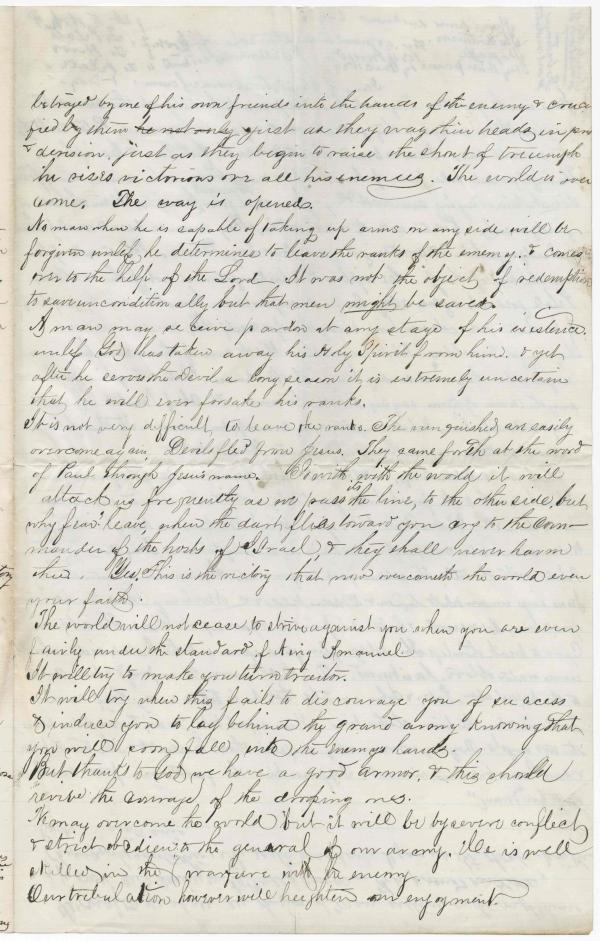 betrayed by one of his own friends into the hands of the enemy & cruci
fied by them he not only just as they wag thier heads in
& derision, just as they begin to raise the shout of triumph
he rises victorious ove all his enemies. The world is over
come. The way is opened.
No man when he is capable of taking up arms on any side will be
forgiven unless he determines to leave the ranks of the enemy. & comes
over to the help of the Lord. It was not the object of redemption
to save unconditionally but that men might be saved
A man may receive pardon at any stage of his existence.
unless God has taken away his Holy Spirit from him. & yet
after he serves the Devil a long season it is extremely uncertain
that he will ever forsake his ranks.
It is not very difficult to leave the ranks. The vanquished are easily
overcome again, Devils fled from Jesus. They came forth at the word
of Paul through Jesus name. So with with the world it will
attack us frequently as we pass the line, to the other side, but
why fear? leave, when the dart flies toward you cry to the com-
mander of the hosts of Israel, & they shall never harm
thee. Yes, This is the victory that now overcometh the world even
your faith.
The world will not cease to strive against you when you are even
fairly under the standard of King Emanuel
It will try to make you turn traitor.
It will try when this fails to discourage you of success
& induce you to lay behind the grand army knowing that
you will soon fall into the enemys hands.
But thanks to God we have a good armor, & this should
revive the courage of the drooping ones.
We may overcome the world but it will be by severe conflict
& strict obedience to the general of our army. He is well
skilled in the warfare with the enemy
Our tribulation however will heighten our enjoyment.